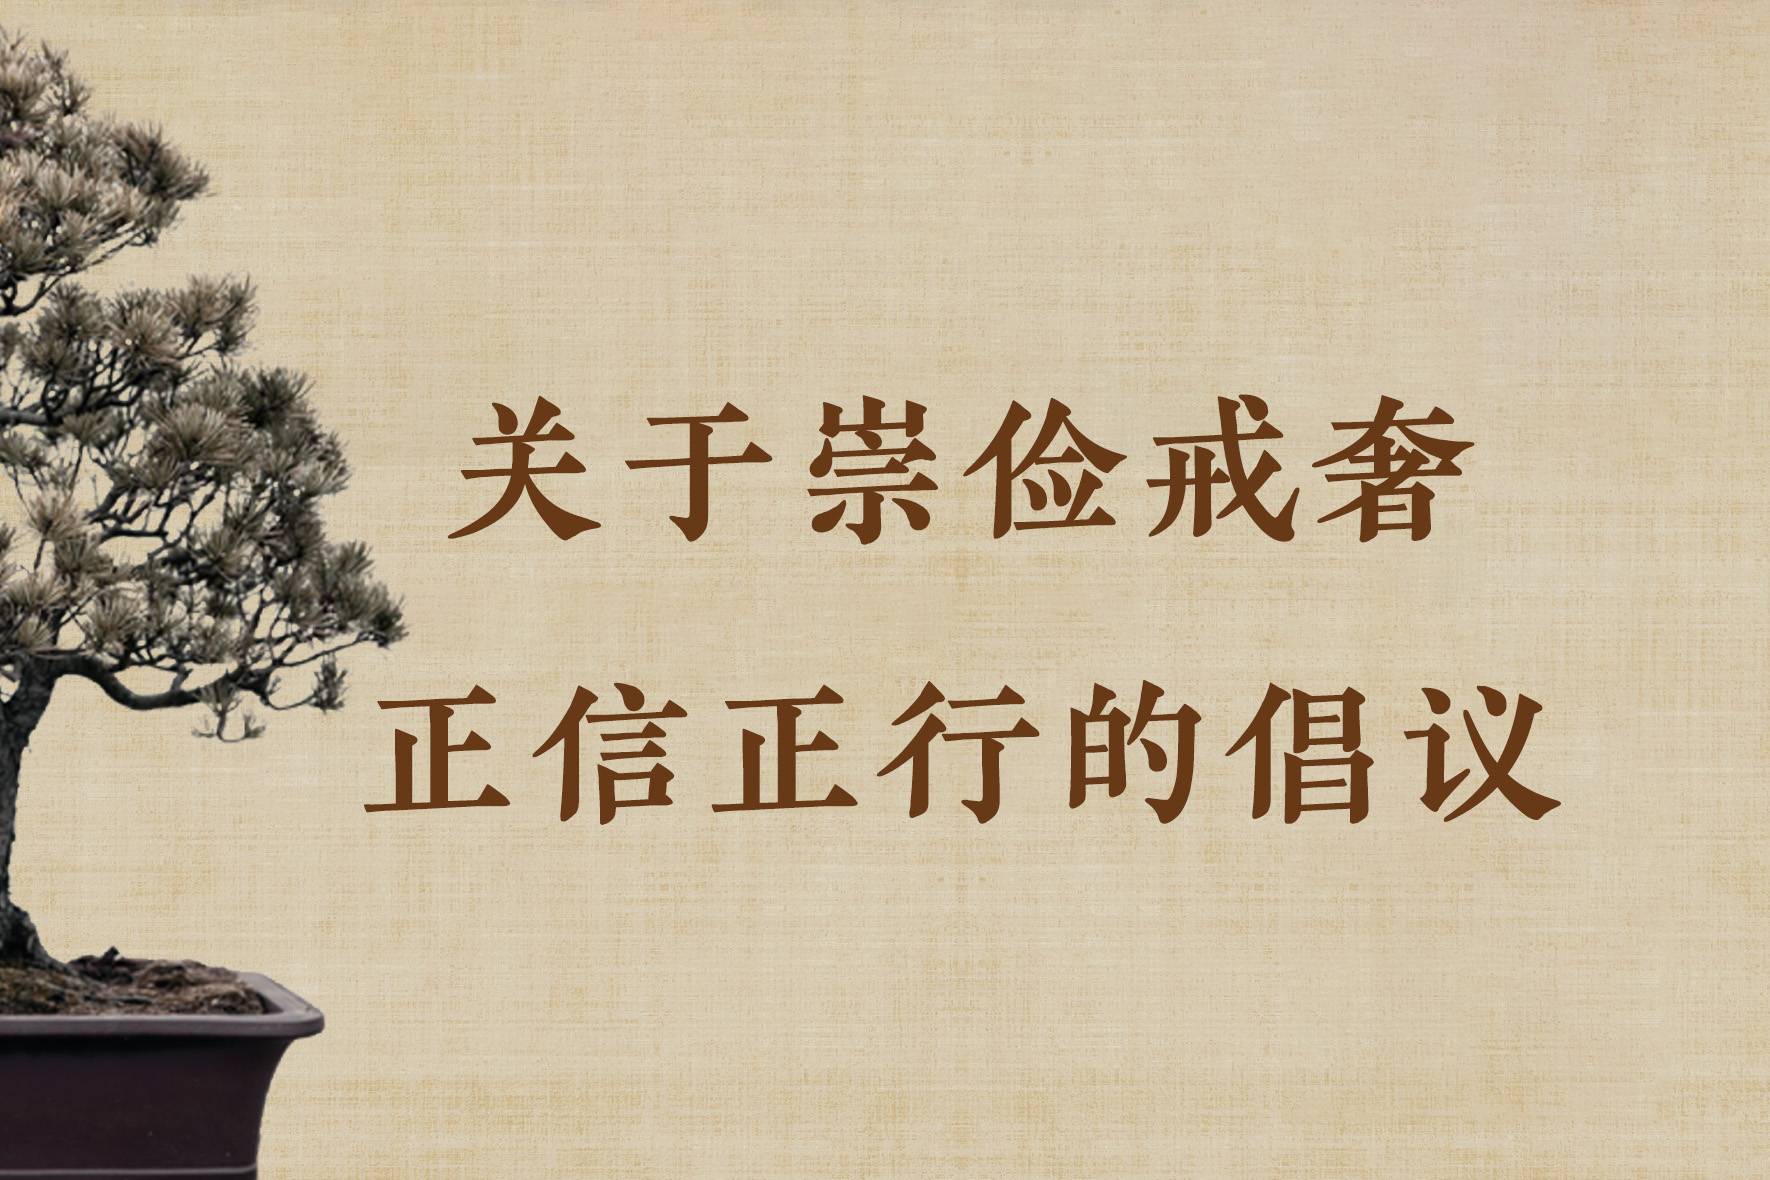 关于崇俭戒奢
正信正行的倡议